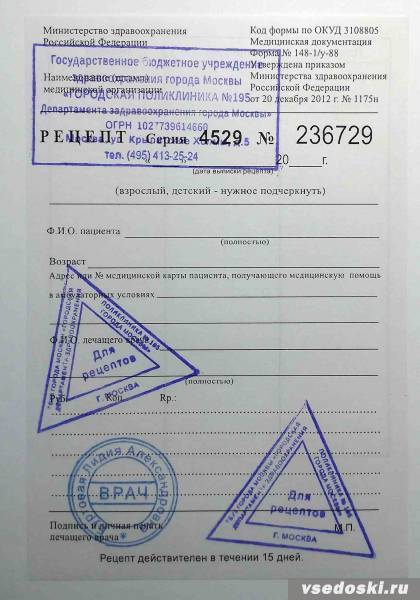 Министерство здравоохранения
Российской Федерации
Код формы по ОКУД 3108805
Медицинская документация
Форма № 148-1/у-88
Утверждена приказом
Министерства здравоохранения
Российской Федерации
от 20 декабря 2012 г. № 1175н
Наименование (штамп)
медицинской организации
Государственное бюджетное учреждение
здравоохранения города Москвы
«ГОРОДСКАЯ ПОЛИКЛИНИКА №195
Департамента здравоохранения города Москвы»
ОГРН 1027739614660
Москва, ул. Крылатские Холмы, д.5
тел. (495) 413-25-24
РЕЦЕПТ Серия 4529 № 236729
20 г.
(дата выписки рецепта)
(взрослый, детский - нужное подчеркнуть)
Ф.И.О. пациента
(полностью)
Возраст
Адрес или № медицинской карты пациента, получающего медицинскую помощь
в амбулаторных условиях
Ф.И.О. лечащего врача
(полностью)
Руб. Коп. Rp.:
ПОЛИКЛИНИКА № 195
ГОРОДА МОСКВЫ»
ГБУЗ ГОРОДА МОСКВЫ «ГОРОДСКАЯ
ДЕПАРТАМЕНТА ЗДРАВООХРАНЕНИЯ
Для
рецептов
г. МОСКВА
Лидия Александровна
ВРАЧ
ПОЛИКЛИНИКА № 195
ГОРОДА МОСКВЫ»
ГБУЗ ГОРОДА МОСКВЫ «ГОРОДСКАЯ
ДЕПАРТАМЕНТА ЗДРАВООХРАНЕНИЯ
Для
рецептов
г. МОСКВА
Подпись и личная печать
лечащего врача
М.П.
Рецепт действителен в течении 15 дней.
vsedoski.ru